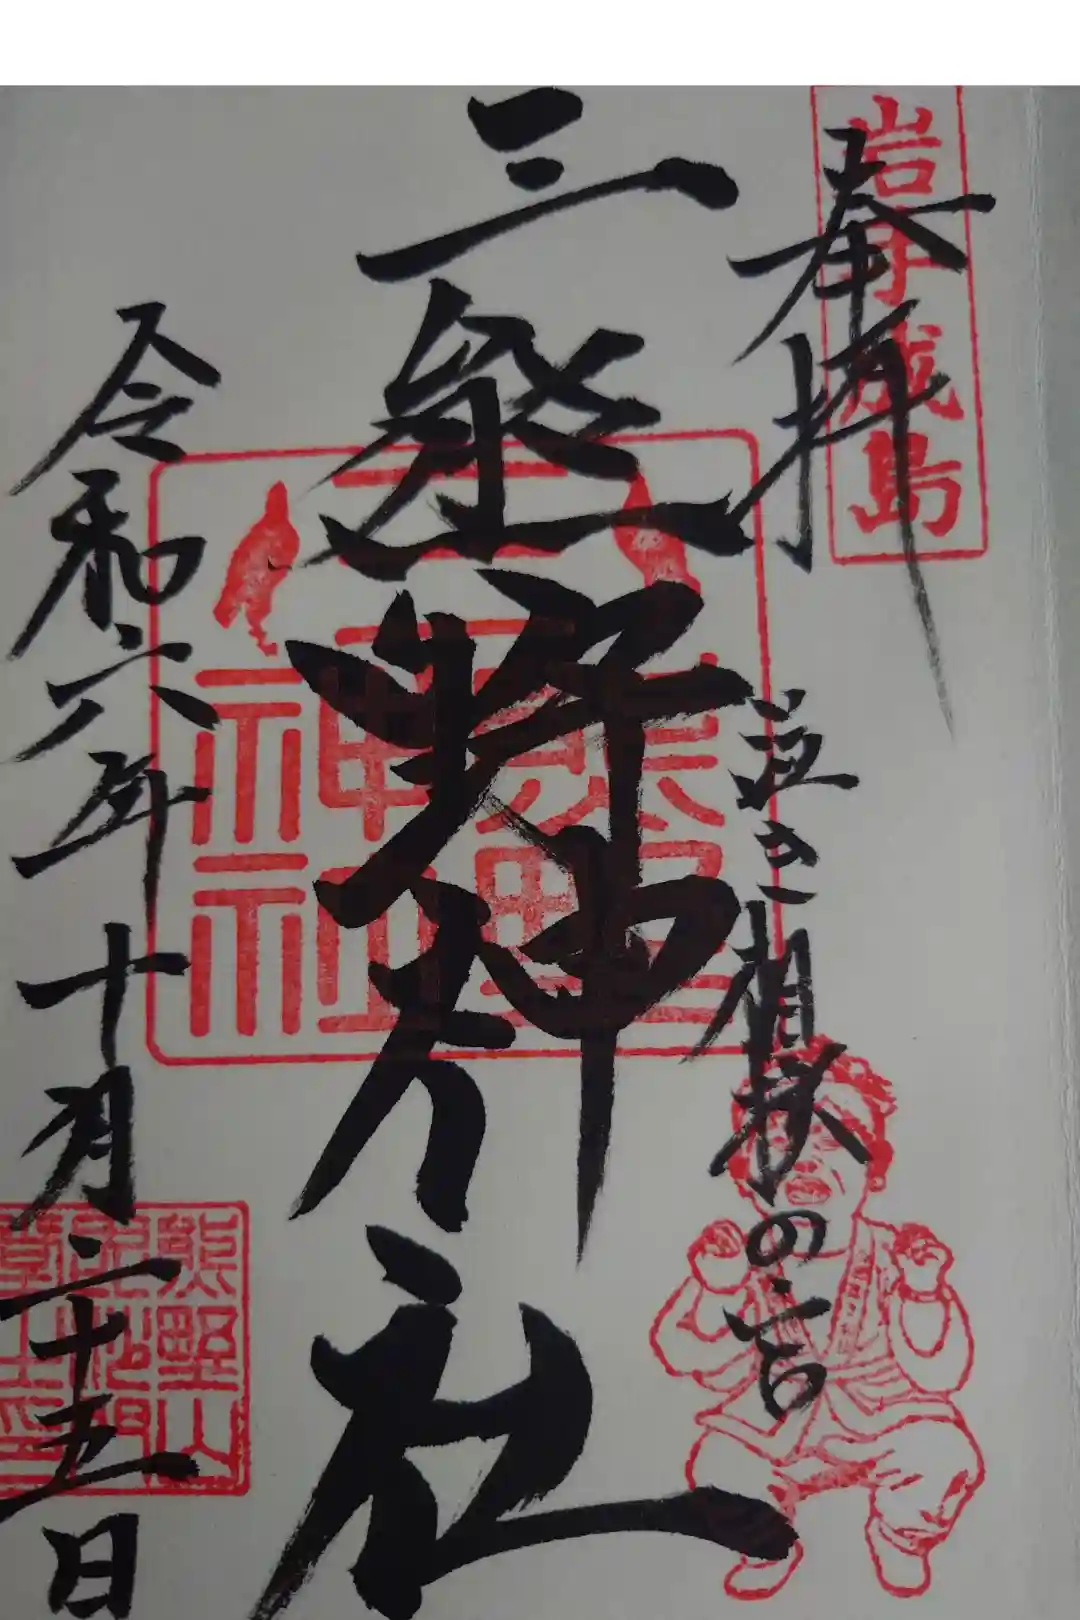 岩手成島
奉拝
泣き相撲の宮
三熊野神社
三熊野神社
令和六年十月二十五日
熊野山